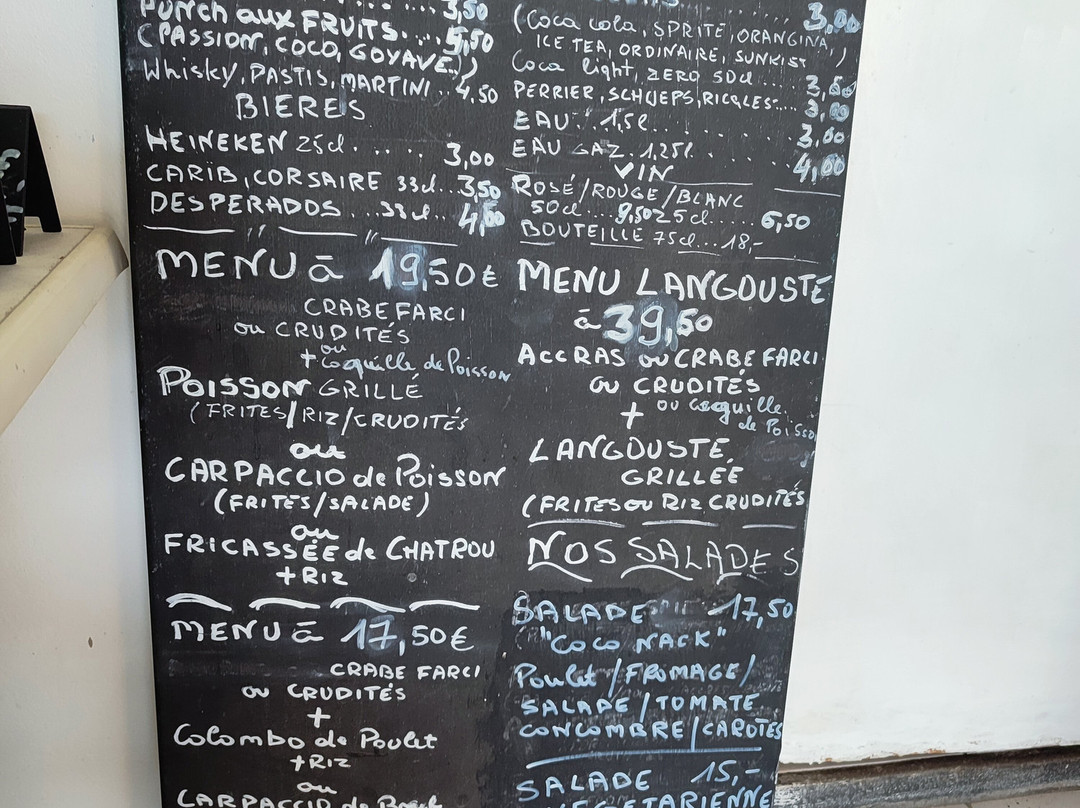 3,50
PUNCH aux FRUITS.... 5,50
(PASSION, COCO, GOYAVE..)
Whisky, PASTIS, MARTINI.. 4,50
BIERES
HEINEKEN 25cl...... 3,00
CARIB, CORSAIRE 33cl... 3,50
DESPERADOS...33cl...
MENU à 19,50€
CRABE FARCI
ou CRUDITÉS
ou
+ coquille de Poisson
POISSON GRILLÉ
(FRITES/RIZ/CRUDITÉS
ou
CARPACCIO de Poisson
(FRITES/SALADE)
ou
FRICASSÉE de CHATROU
+RIZ
MENU à 17,50€
CRABE FARCI
ou CRUDITÉS
+
Colombo de Poulet
+RIZ
ou
CARPACCIO de
3,00
(Coca cola, SPRITE, ORANGINA,
ICE TEA, ORDINAIRE, SUNKIST)
Coca light, ZERO 50cl... 3,50
PERRIER, SCHWEPS, RICQLES.... 3,00
EAU 1,5l........ 3,00
EAU GAZ. 1,25l...... 4,00
VIN
ROSÉ/ROUGE/BLANC
50cl....9,50 25cl...... 6,50
BOUTEILLE 75cl... 18,-
MENU LANGOUSTE
à 39,50
ACCRAS ou CRABE FARCI
ou CRUDITÉS
+ ou coquille
de Poisson
LANGOUSTE
GRILLÉE
(FRITES ou RIZ CRUDITÉS
NOS SALADES
SALADE 17,50
"Coco NACK"
Poulet/FROMAGE/
SALADE/TOMATE
CONCOMBRE/CAROTES
SALADE 15,-
VEGETARIENNE